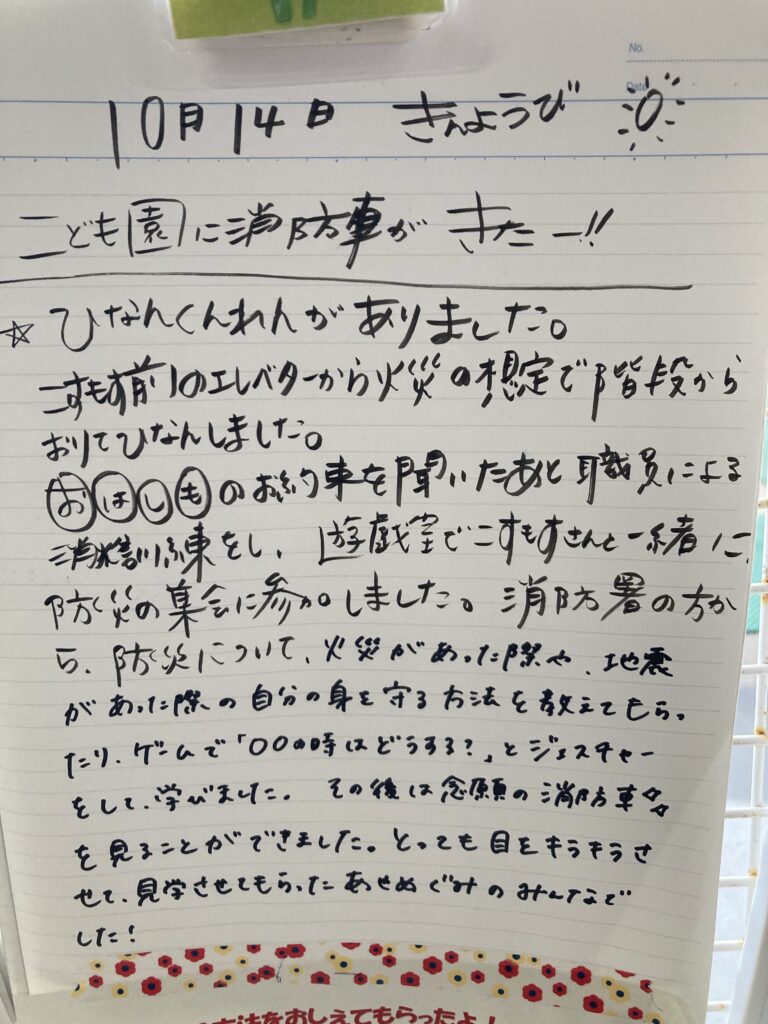 No.
Date
10月14日 きんようび
こども園に消防車がきたー!!
☆ ひなんくんれんがありました。
こすもす前のエレベターから火災の想定で階段から
おりてひなんしました。
おはしものお約束を聞いたあと職員による
消火訓練をし、遊戯室でこすもすさんと一緒に、
防災の集会に参加しました。消防署の方か
ら、防災について、火災があった際や、地震
があった際の自分の身を守る方法を教えてもらっ
たり、ゲームで「〇〇の時はどうする?」とジェスチャー
をして、学びました。その後は念願の消防車☆☆
を見ることができました。とっても目をキラキラさ
せて、見学させてもらったあせぬぐみのみんなで
した!
方法をおしえてもらったよ!